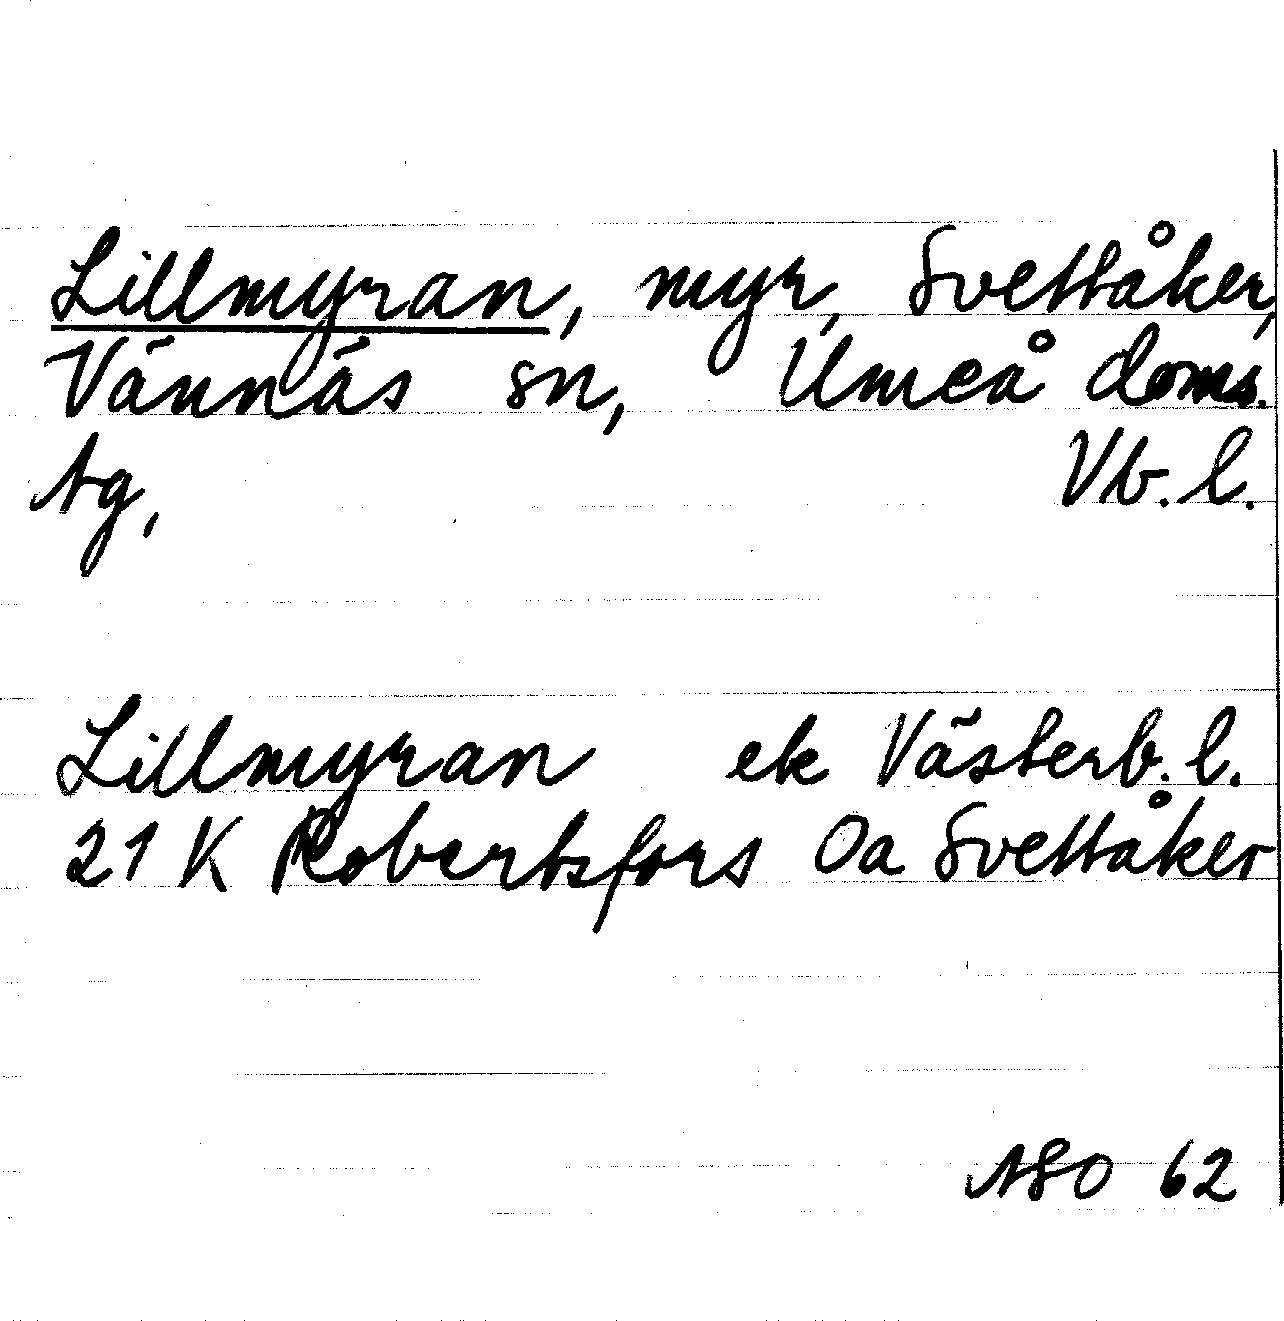 Lillmyran, myr, Svettåker,
Vännäs sn, Umeå doms.
tg, Vb. l.
Lillmyran ek Västerb. l.
21 K Robertsfors Oa Svettåker
ASO 62